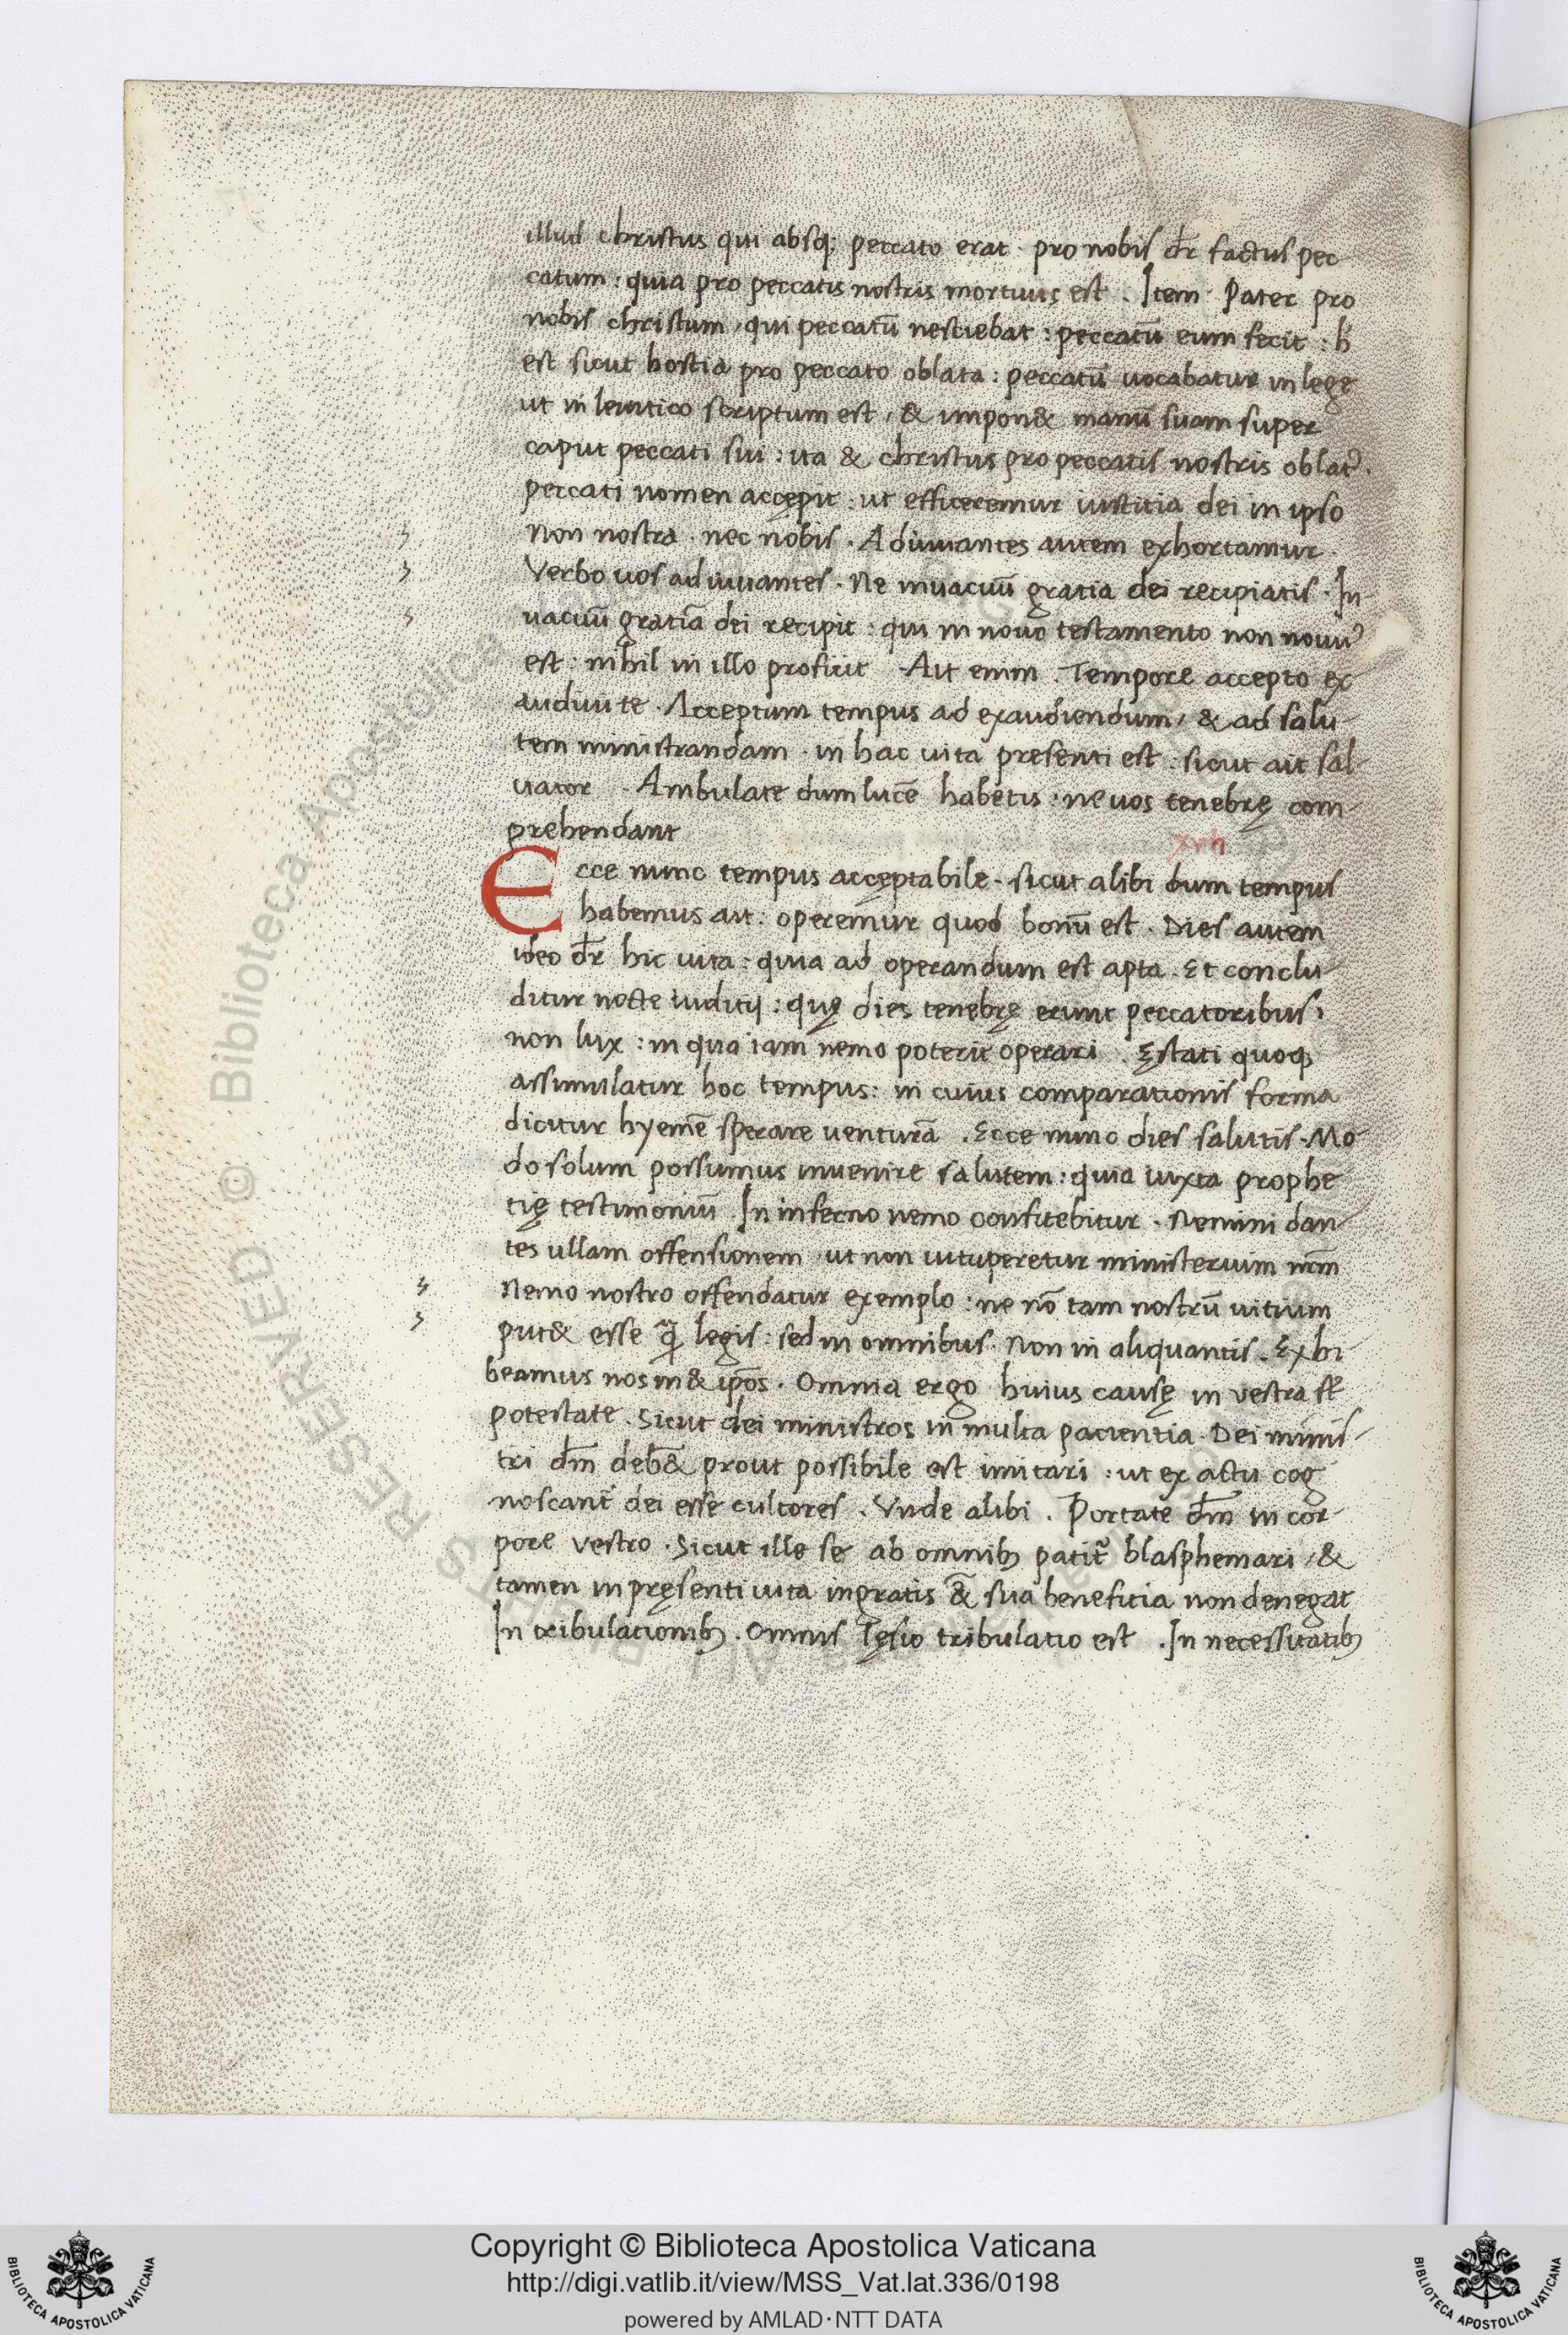 illud christus qui absq; peccato erat · pro nobis dr̄ factus pec
catum : quia pro peccatis nostris mortuus est . Item · Pater pro
nobis christum , qui peccatū nesciebat : peccatū eum fecit : h̄
est sicut hostia pro peccato oblata : peccatū uocabatur in lege
ut in leuitico scriptum est , & impon& manū suam super
caput peccati sui : ita & christus pro peccatis nostris oblatꝰ .
peccati nomen accępit : ut efficeremur iustitia dei in ipso
Non nostra · nec nobis . Adiuuantes autem exhortamur .
Verbo uos adiuuantes . Ne inuacuū gratia dei recipiatis . In-
uacuū gratiā dei recipit : qui in nouo testamento non nouuꝰ
est : nihil in illo proficit . Ait enim . Tempore accepto ex
audiui te . Acceptum tempus ad exaudiendum , & ad salu-
tem ministrandam · in hac uita presenti est : sicut ait sal-
uator . Ambulate dum lucē habetis : ne uos tenebrę com-
prehendant
xvii
Ecce nunc tempus accęptabile . sicut alibi dum tempus
habemus ait : operemur quod bonū est . Dies autem
ideo dr̄ hic uita : quia ad operandum est apta . Et conclu-
ditur nocte iuditij : quę dies tenebrę erunt peccatoribus ,
non lux : in qua iam nemo poterit operari . Ęstati quoq;
assimilatur hoc tempus : in cuius comparationis forma
dicitur hyemē sperare venturā . Ecce nunc dies salutis . Mo
do solum possumus inuenire salutem : quia iuxta prophe
tię testimoniū . In inferno nemo confitebitur . Nemini dan-
tes ullam offensionem · ut non uituperetur ministerium nr̄m
Nemo nostro offendatur exemplo : ne nō tam nostrū uitium
put& esse q̃ legis : sed in omnibus . Non in aliquantis . Exhi-
beamus nosm& ip̄os . Omnia ergo huius causę in vestra st̄
potestate . Sicut dei ministros in multa pacientia . Dei minis-
tri dm̄ deb̄& prout possibile est imitari : ut ex actu cog
noscant̄ dei esse cultores . Vnde alibi . Portate dm̄ in cor-
pore vestro . Sicut ille se ab omnib; patit̄ blasphemari , &
tamen in pręsenti uita ingratis &̄ sua beneficia non denegat
In tribulationib; . Omnis lęsio tribulatio est . In necessitatib;
© Biblioteca Apostolica Vaticana
RIGHTS RESERVED
Copyright © Biblioteca Apostolica Vaticana
http://digi.vatlib.it/view/MSS_Vat.lat.336/0198
powered by AMLAD·NTT DATA
BIBLIOTECA APOSTOLICA VATICANA
BIBLIOTECA APOSTOLICA VATICANA